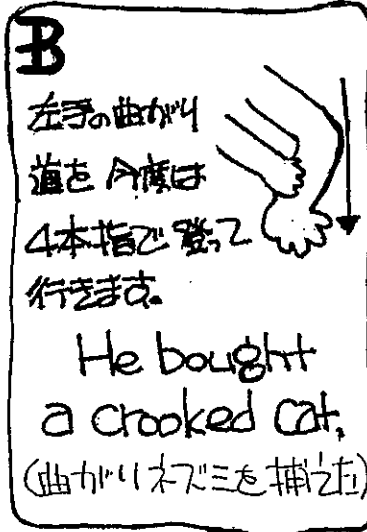 B
左手の曲がり
道を今度は
4本指で登って
行きます。
He bought
a crooked cat,
(曲がりネズミを捕えた)